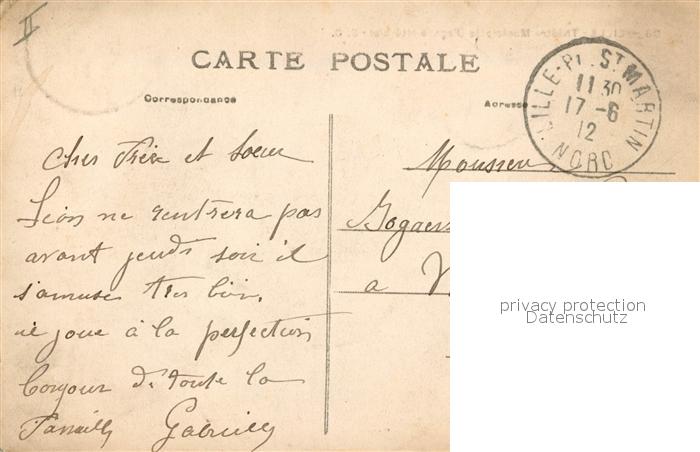 II
CARTE POSTALE
Correspondance
Adresse
LILLE-PL. ST MARTIN
11 30
17 -6
12
NORD
Cher Frère et Soeur
Léon ne rentrera pas
avant jeudi soir il
s'amuse très bien.
joue à la perfection
bonjour de toute la
famille
Monsieur
a V
privacy protection
Datenschutz